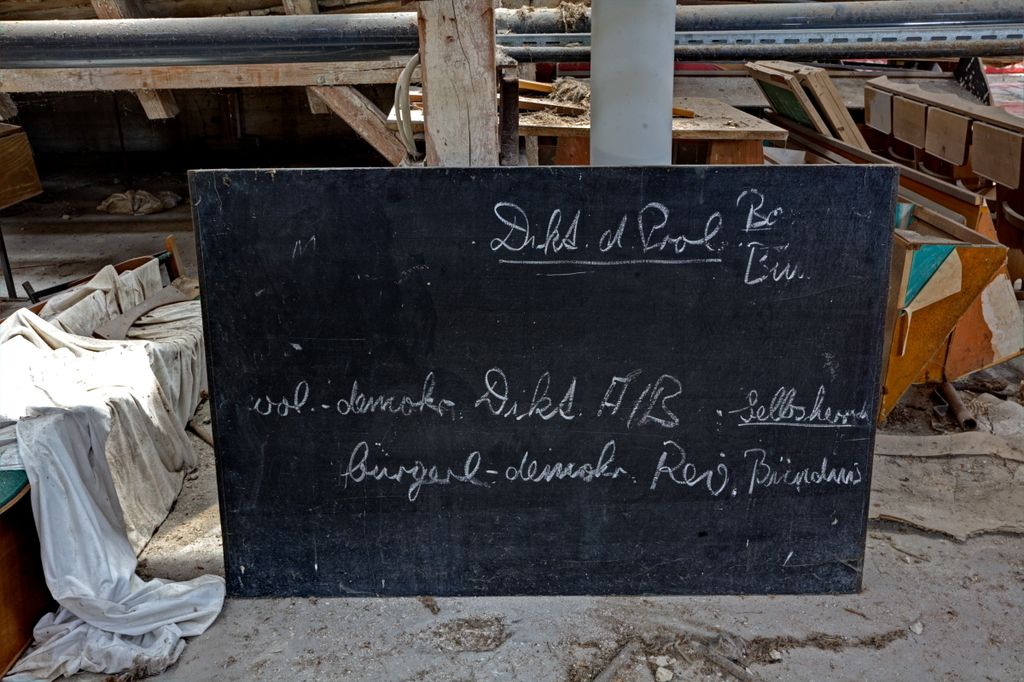 Dikt. d. Prol. Bo
Bü..
vol.-demokr. Dikt. A/B Selbstherr
bürgerl-demokr. Rev. Bündnis